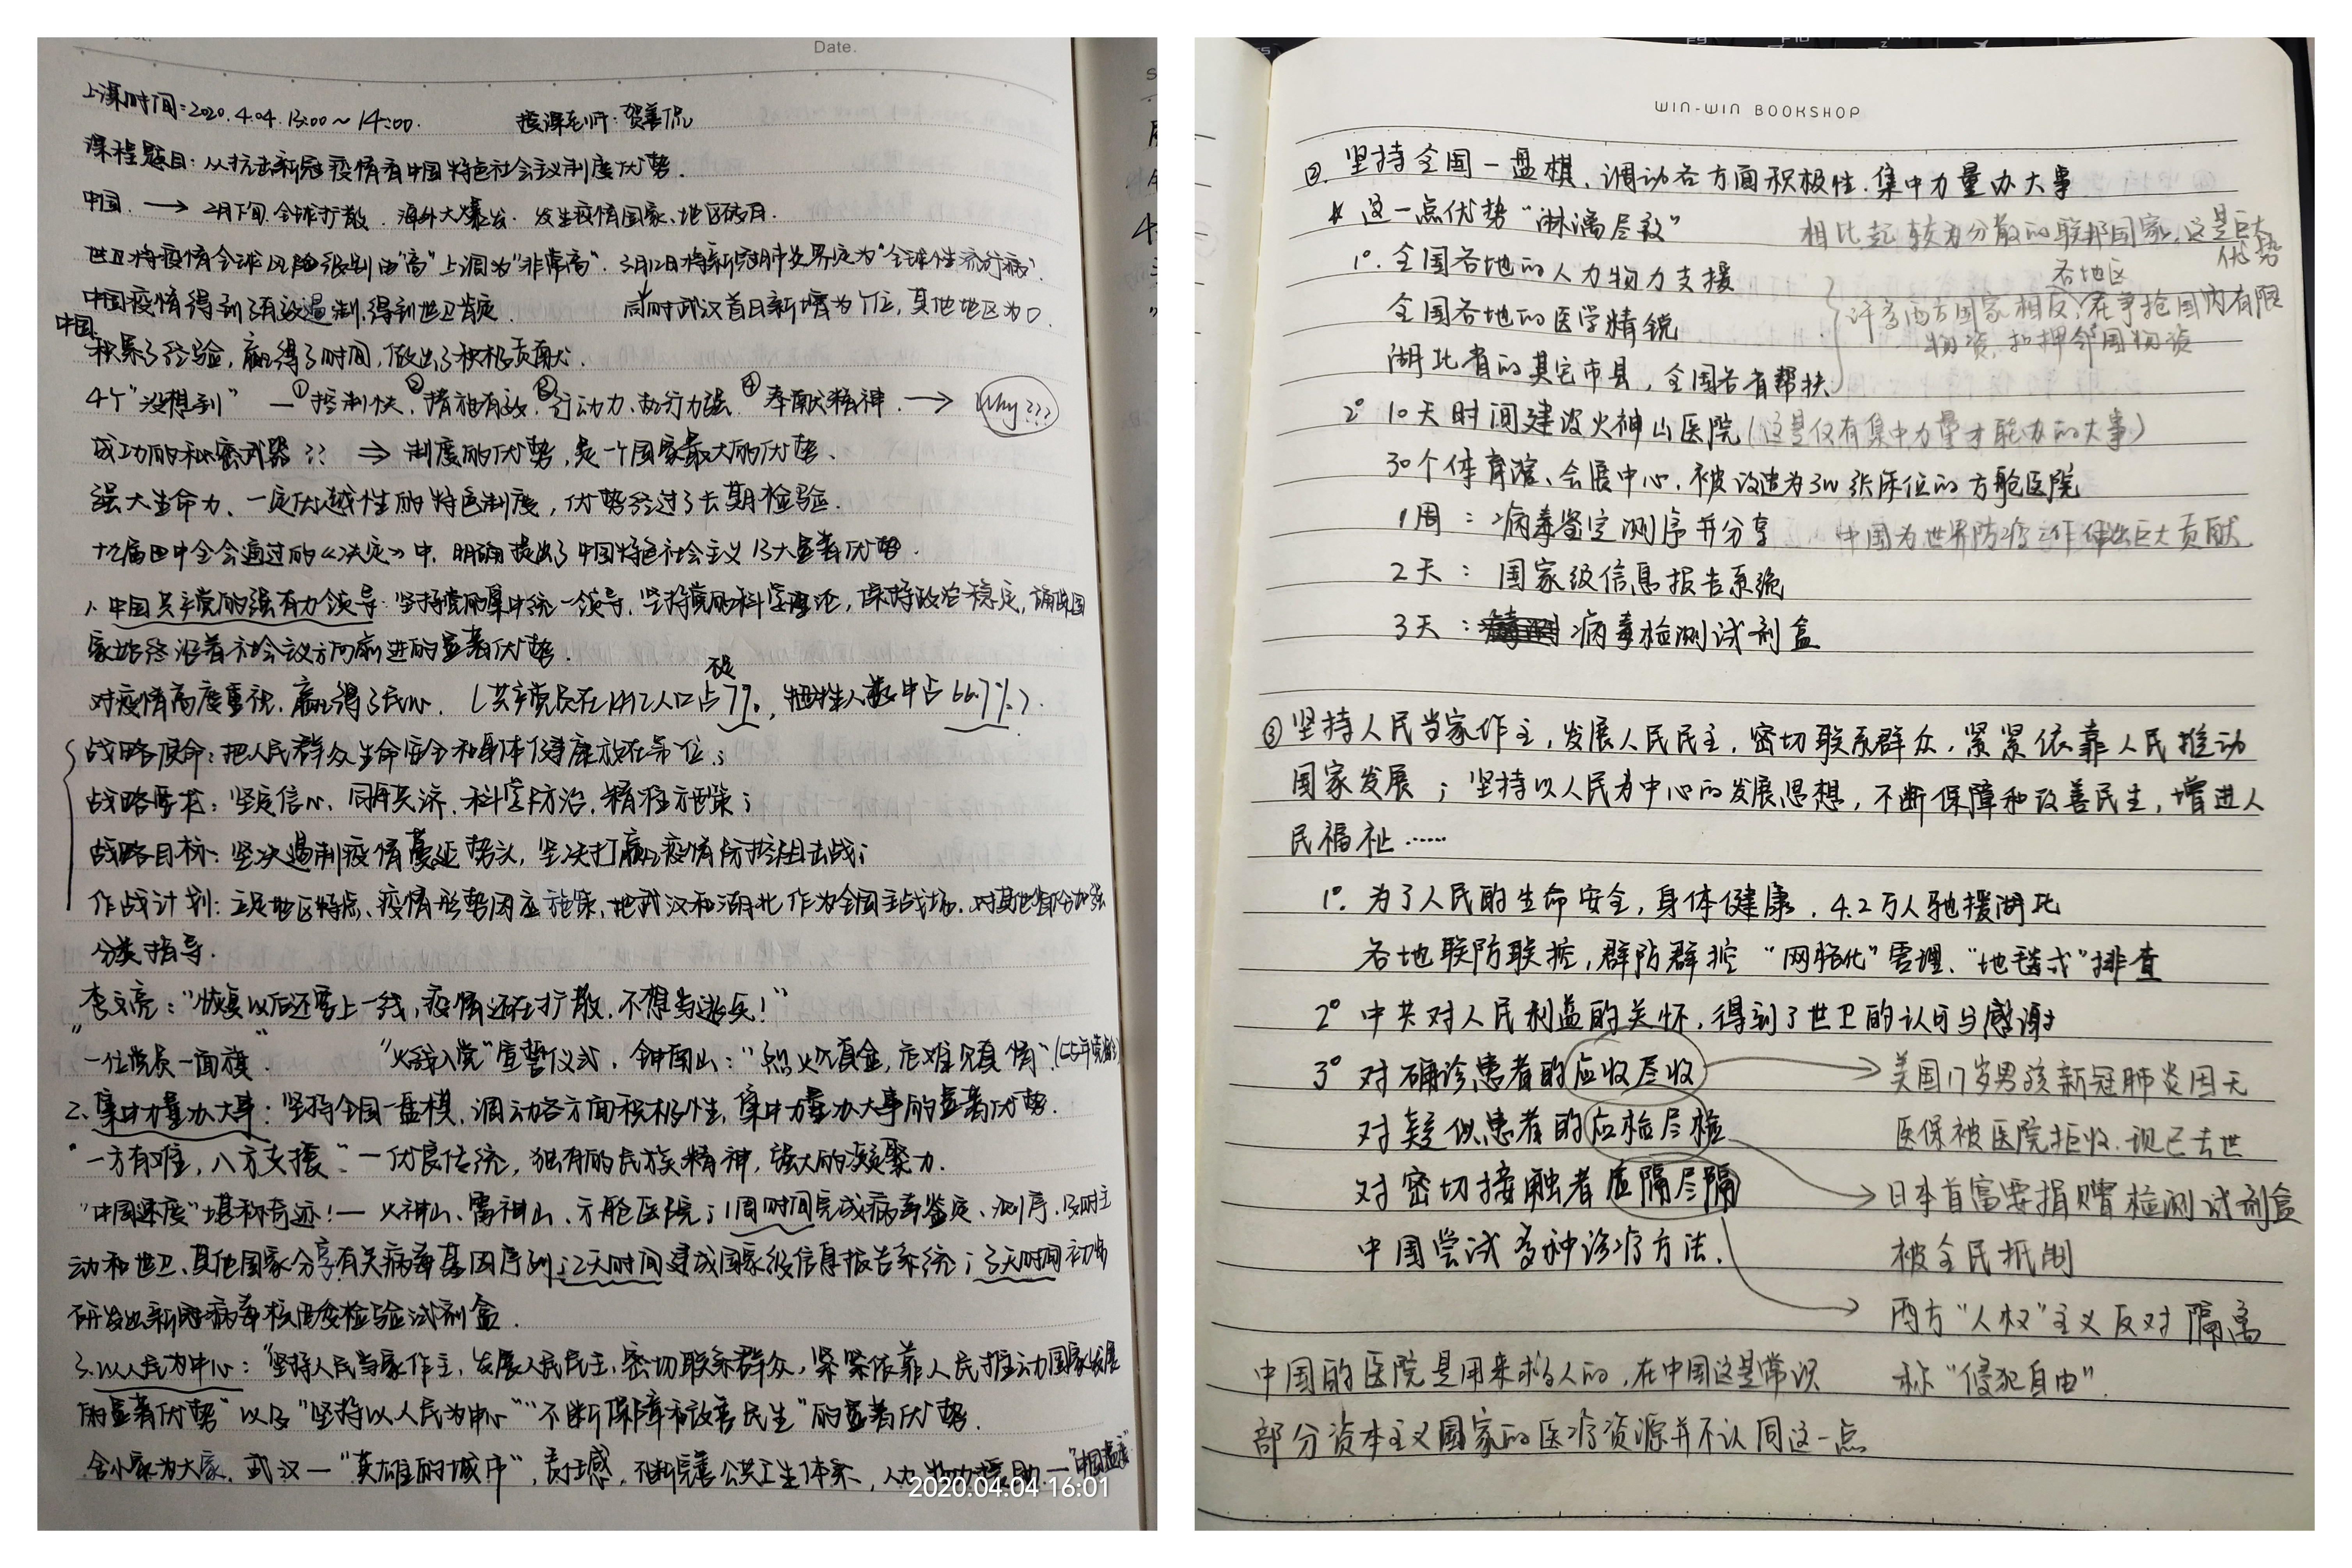 Date.
上课时间：2020.4.04. 13:00～14:00. 授课老师：贺善侃
课程题目：从抗击新冠疫情看中国特色社会主义制度优势．
中国．→ 2月下旬．全球扩散．海外大爆发．发生疫情国家、地区
世卫将疫情全球风险级别由“高”上调为“非常高”．3月12日将新冠肺炎界定为“全球性流行病”．
中国疫情得到了有效遏制，得到世卫肯定． 同时武汉首日新增为个位，其他地区为0．
中国：
积累了经验，赢得了时间，做出了积极贡献．
4个“没想到” —①控制快．②措施有效．③行动力、执行力强．④奉献精神．→ Why???
成功的秘密武器？？ ⇒ 制度的优势，是一个国家最大的优势．
强大生命力、一定优越性的特色制度，优势经过了长期检验．
十九届四中全会通过的《决定》中，明确提出了中国特色社会主义13大显著优势．
1. 中国共产党的强有力领导：坚持党的集中统一领导，坚持党的科学理论，保持政治稳定，确保国
家始终沿着社会主义方向前进的显著优势．
不足
对疫情高度重视，赢得了民心．（共产党员在14亿人口占7%，牺牲人数中占66.7%）．
战略使命：把人民群众生命安全和身体健康放在第一位；
战略要求：坚定信心、同舟共济、科学防治、精准施策；
战略目标：坚决遏制疫情蔓延势头，坚决打赢疫情防控阻击战；
作战计划：立足地区特点、疫情形势因应施策，把武汉和湖北作为全国主战场．对其他省份加强
分类指导．
李文亮：“恢复以后还要上一线，疫情还在扩散，不想当逃兵！”
“一位党员一面旗” “火线入党”宣誓仪式．钟南山：“烈火见真金，危难显真情”．（55年党龄）
2. 集中力量办大事：坚持全国一盘棋，调动各方面积极性，集中力量办大事的显著优势．
“一方有难，八方支援”—优良传统，独有的民族精神，强大的凝聚力．
“中国速度”堪称奇迹！— 火神山、雷神山、方舱医院；1周时间完成病毒鉴定、测序，及时主
动和世卫、其他国家分享有关病毒基因序列；2天时间建成国家级信息报告系统；3天时间初步
研发出新冠病毒核酸检验试剂盒．
3. 以人民为中心：“坚持人民当家作主，发展人民民主，密切联系群众，紧紧依靠人民推动国家发展
的显著优势”以及“坚持以人民为中心”“不断保障和改善民生”的显著优势．
舍小家为大家．武汉—“英雄的城市”，责任感，不断完善公共卫生体系，人力物力援助—“中国温度”
2020.04.04 16:01
WIN-WIN BOOKSHOP
②．坚持全国一盘棋、调动各方面积极性．集中力量办大事
* 这一点优势“淋漓尽致”
相比起较为分散的联邦国家，这是巨大
优势
1°. 全国各地的人力物力支援
各地区
全国各地的医学精锐
许多西方国家相反，在争抢国内有限
物资，扣押邻国物资
湖北省的其它市县，全国各省帮扶
2° 10天时间建设火神山医院（这是仅有集中力量才能办的大事）
30个体育馆、会展中心．被改造为3W张床位的方舱医院
1周：病毒鉴定测序并分享 中国为世界防疫工作作出巨大贡献
2天：国家级信息报告系统
3天：病毒检测试剂盒
③ 坚持人民当家作主，发展人民民主，密切联系群众，紧紧依靠人民推动
国家发展；坚持以人民为中心的发展思想，不断保障和改善民生，增进人
民福祉……
1°. 为了人民的生命安全，身体健康．4.2万人驰援湖北
各地联防联控，群防群控 “网格化”管理．“地毯式”排查
2° 中共对人民利益的关怀，得到了世卫的认可与感谢
3° 对确诊患者的应收尽收 → 美国17岁男孩新冠肺炎因无
医保被医院拒收．现已去世
对疑似患者的应检尽检
对密切接触者应隔尽隔
→ 日本首富要捐赠检测试剂盒
被全民抵制
中国尝试多种诊疗方法．
→ 西方“人权”主义反对隔离
称“侵犯自由”．
中国的医院是用来救人的，在中国这是常识
部分资本主义国家的医疗资源并不认同这一点